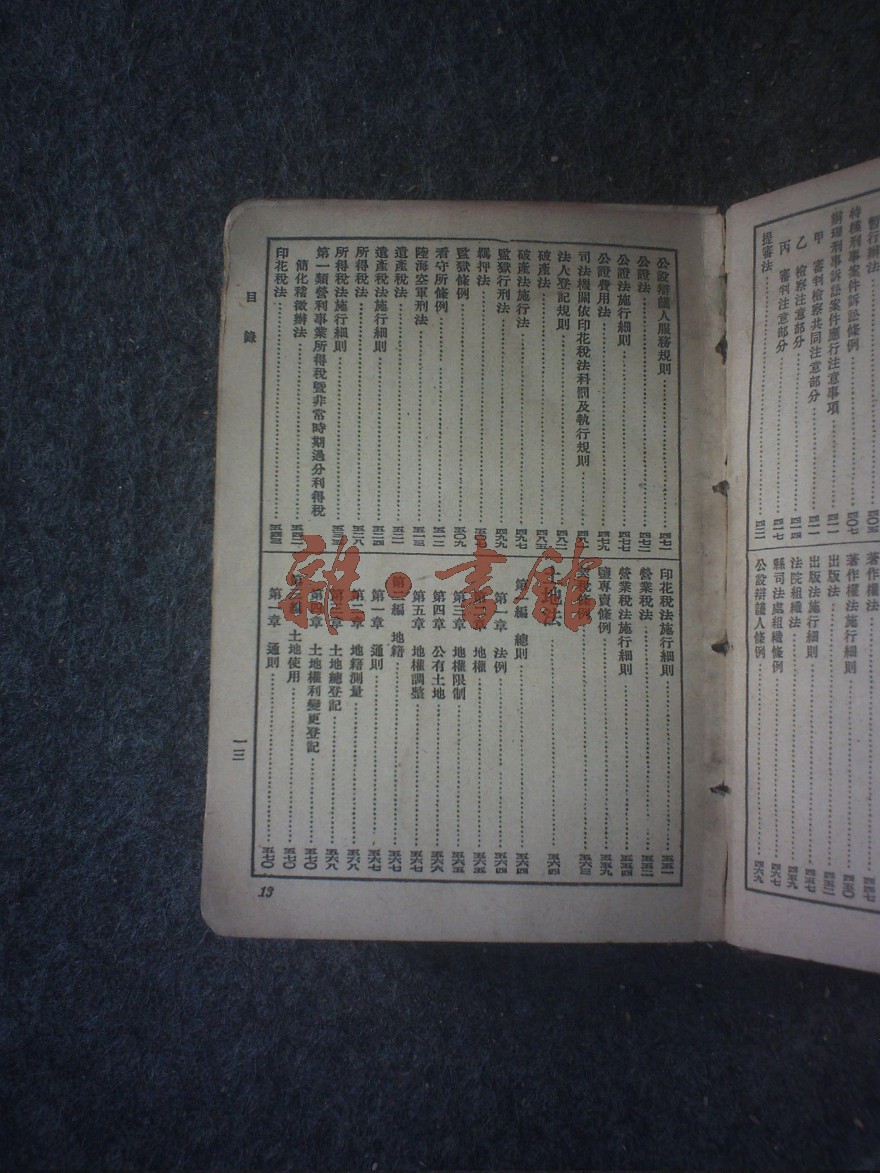 暫行辦法 四〇五
特種刑事案件訴訟條例 四〇七
辦理刑事訴訟案件應行注意事項 四一一
甲 審判檢察共同注意部分 四一一
乙 檢察注意部分 四一四
丙 審判注意部分 四一七
提審法
著作權法 四四七
著作權法施行細則 四五〇
出版法 四五二
出版法施行細則 四五七
法院組織法 四五九
縣司法處組織條例 四六七
公設辯護人條例 四六九
公設辯護人服務規則 四七一
公證法 四七二
公證法施行細則 四七七
公證費用法 四七九
司法機關依印花稅法科罰及執行規則
法人登記規則 四八二
破產法 四八五
破產法施行法 四九七
監獄行刑法 四九九
羈押法
監獄條例 五〇九
看守所條例 五一二
陸海空軍刑法 五一三
遺產稅法 五二一
遺產稅法施行細則 五二四
所得稅法 五二八
所得稅法施行細則
第一類營利事業所得稅暨非常時期過分利得稅
簡化稽徵辦法 五四二
印花稅法 五四三
印花稅法施行細則 五五一
營業稅法 五五二
營業稅法施行細則 五五四
鹽專賣條例 五五九
契稅條例 五六三
土地法 五六四
第一編 總則 五六四
第一章 法例 五六四
第二章 地權 五六五
第三章 地權限制 五六五
第四章 公有土地 五六六
第五章 地權調整 五六七
第二編 地籍 五六七
第一章 通則 五六七
第二章 地籍測量 五六八
第三章 土地總登記 五六八
第四章 土地權利變更登記 五七〇
第三編 土地使用 五七〇
第一章 通則 五七〇
目錄
一三
13
雜·書館